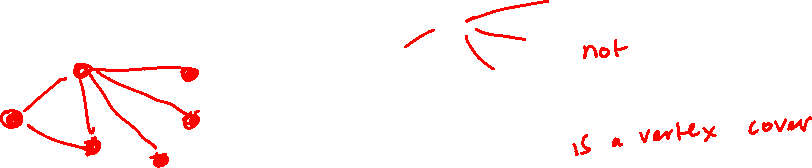 not
is a vertex cover